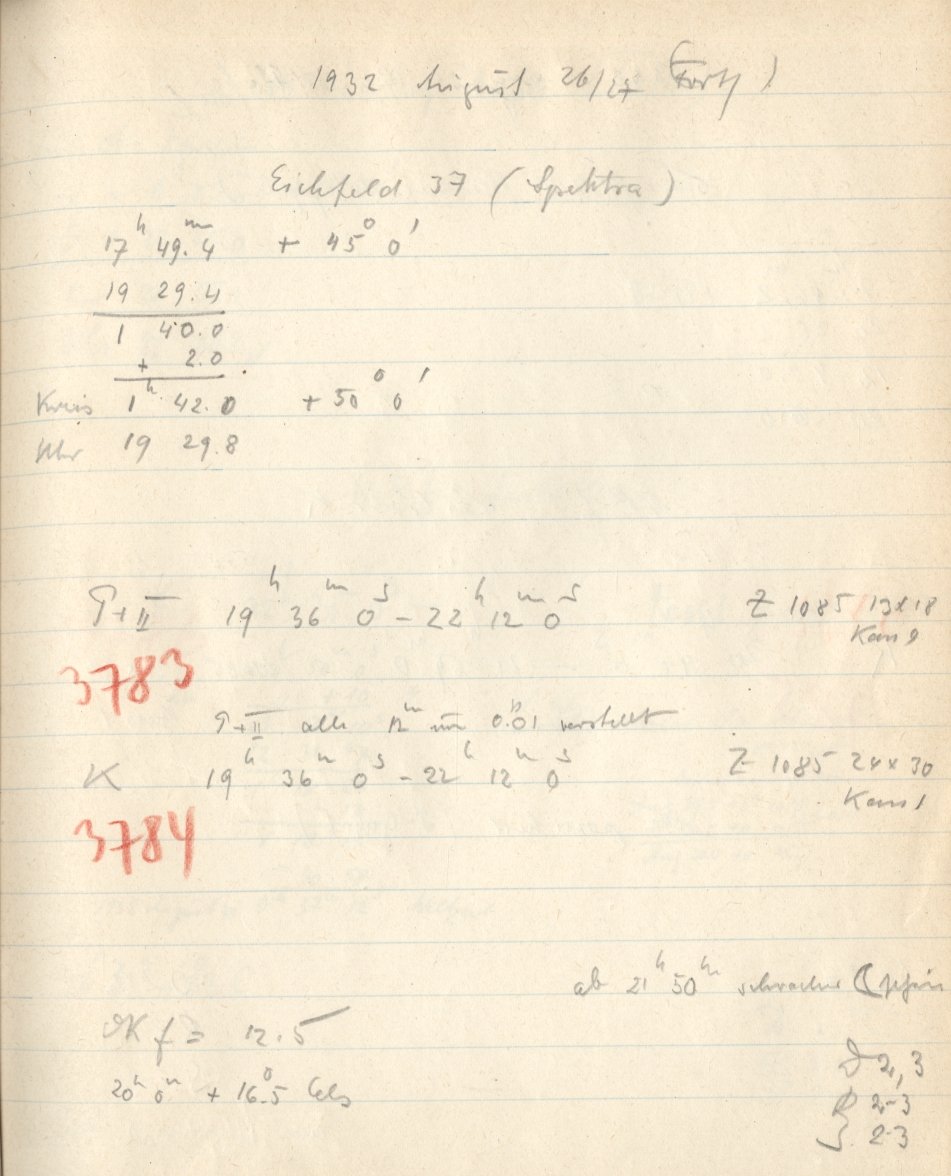 1932 August 26/27 (Forts)
Eichfeld 37 (Spektra)
17ʰ 49.4ᵐ + 45° 0'
19 29.4
1 40.0
+ 2.0
Kreis 1ʰ 42.0 + 50° 0'
Uhr 19 29.8
T+II 19ʰ 36ᵐ 0ˢ - 22ʰ 12ᵐ 0ˢ Z 1085 13x18
3783
T+II alle 12ᵐ um 0.01 verstellt
K 19ʰ 36ᵐ 0ˢ - 22ʰ 12ᵐ 0ˢ Z 1085 24x30
3784
ab 21ʰ 50ᵐ schwacher
f = 12.5
20ʰ 0ᵐ + 16.5° Cels
2,3
2-3
2-3